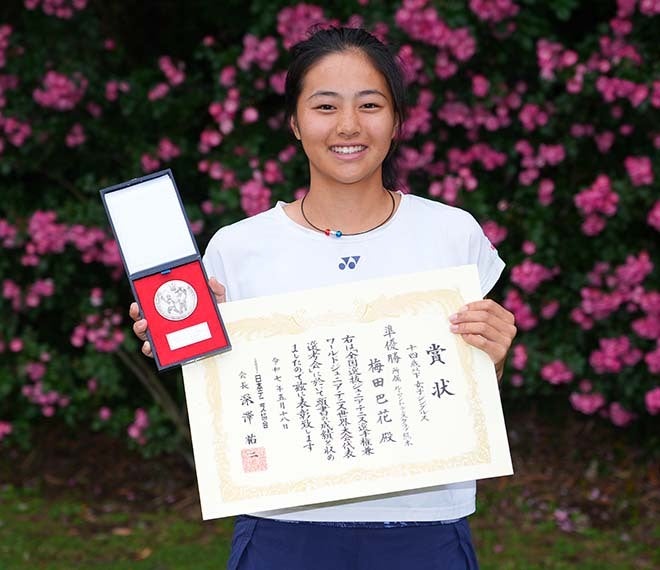 賞状
十四歳以下女子シングルス
準優勝 所属
梅田巴花殿
右は全国選抜ジュニアテニス選手権兼
ワールドジュニアテニス世界大会代表
選考会に於て頭書の成績を収め
ましたので茲に表彰致します
令和七年五月十八
会長 深澤祐二